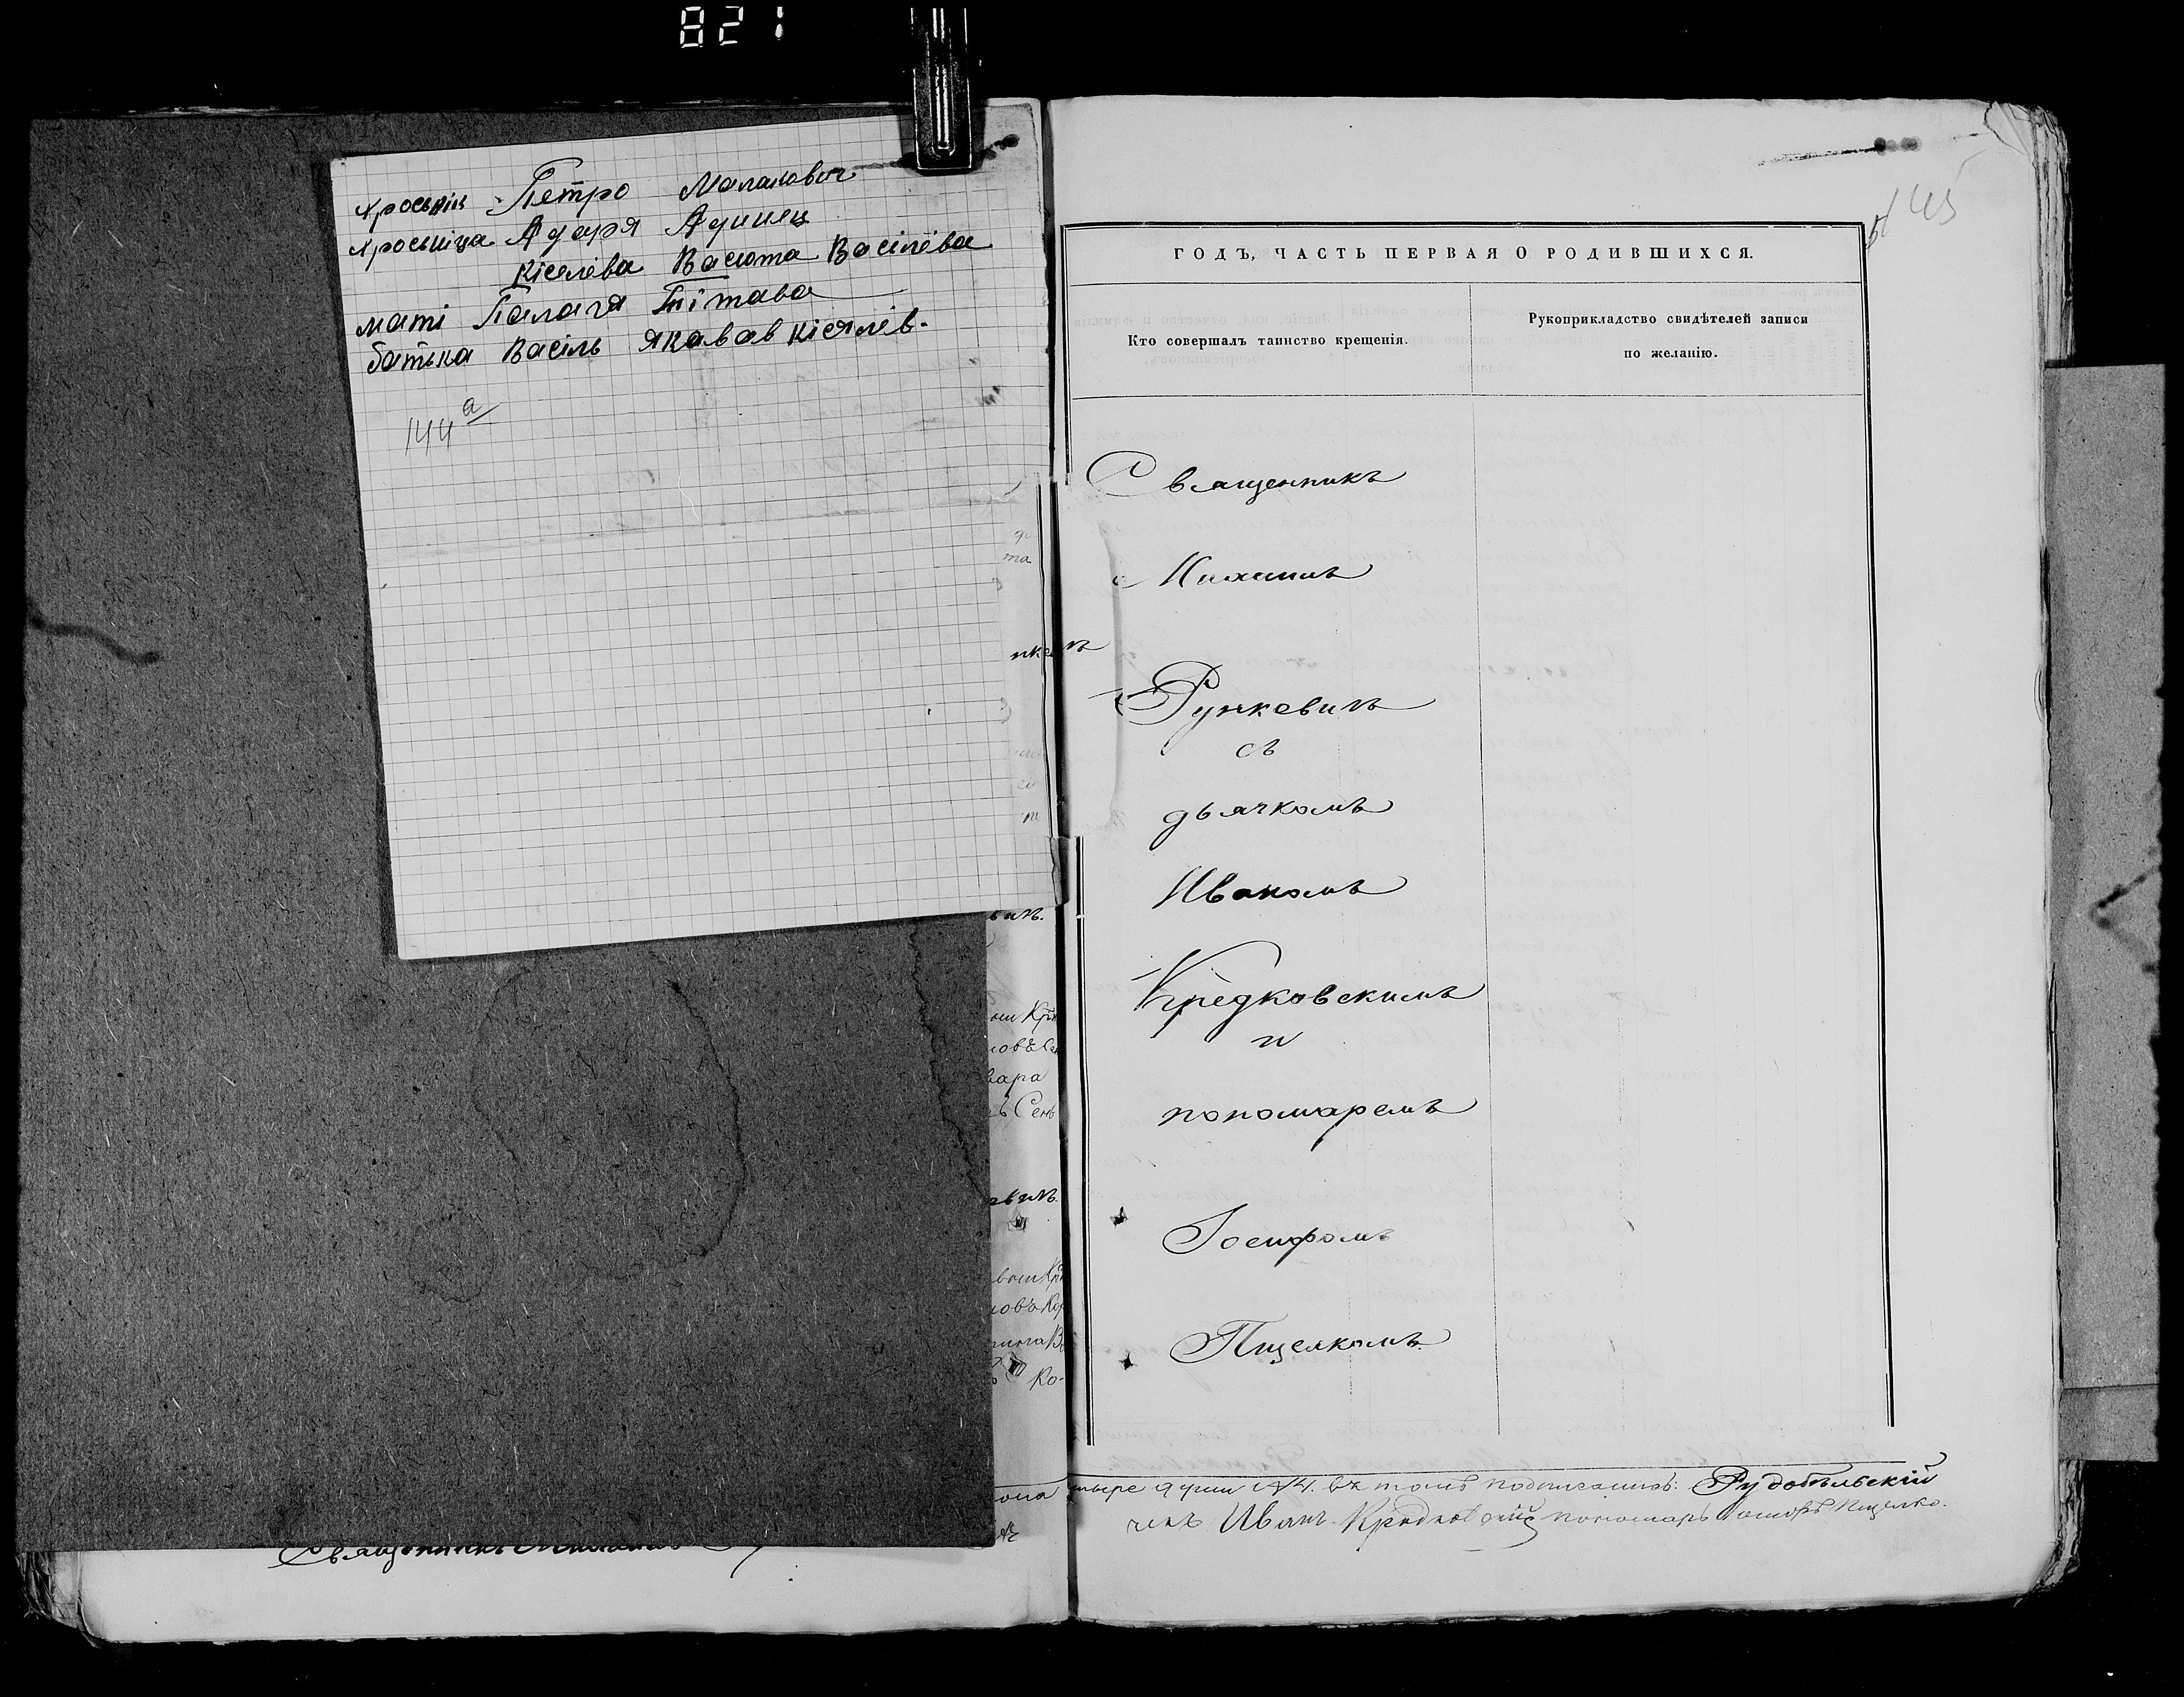 821
хросьнік Петро Малахович
хросьніца Адаря Адинец
Кісялёва Васюта Васілёва
маті Палагя Тітава
батька Васіль Якавав Кісялёв.
144 а
145
ГОДЪ, ЧАСТЬ ПЕРВАЯ О РОДИВШИХСЯ.
Кто совершалъ таинство крещенія.
Рукоприкладство свидѣтелей записи
по желанію.
Священникъ
Михаилъ
Рункевичъ
съ
дьячкомъ
Иваномъ
Кредковскимъ
и
пономаремъ
Іосифомъ
Пщелкомъ.
вара
Ко-
тыре души №4. въ томъ подписались: Рудобѣльскій
чекъ Иванъ Кредковскій пономарь Іосифъ Пщелко.
Священникъ